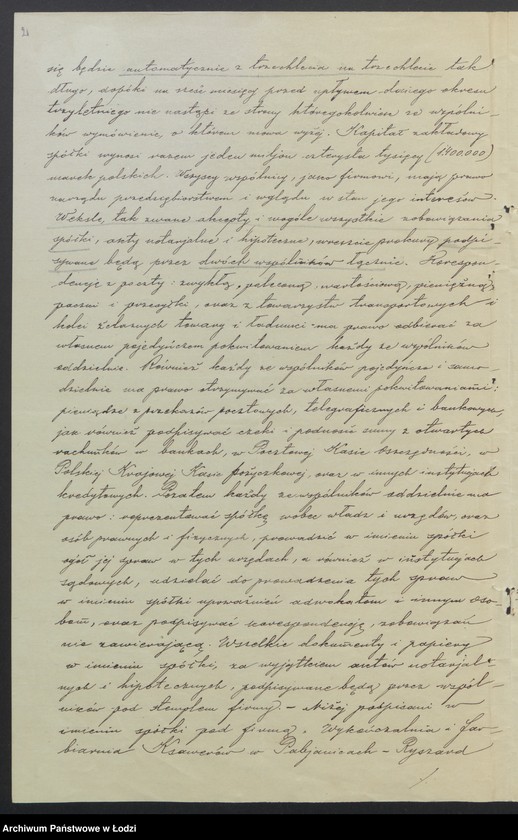 się będzie automatycznie z trzechlecia na trzechlecie tak
długo, dopóki na sześć miesięcy przed upływem danego okresu
trzyletniego nie nastąpi ze strony któregokolwiek ze wspólni-
ków wymówienie, o którem mowa wyżej. Kapitał zakładowy
spółki wynosi razem jeden miljon czterysta tysięcy (1400.000)
marek polskich. Wszyscy wspólnicy, jako firmowi, mają prawo
zarządu przedsiębiorstwem i wglądu w stan jego interesów.
Weksle, tak zwane akcepty i wogóle wszystkie zobowiązania
spółki, akty notarjalne i hipoteczne, wreszcie prokury podpi-
sywane będą przez dwóch wspólników łącznie. Korespon-
dencję z poczty: zwykłą, poleconą, wartościową, pieniężną,
paczki i przesyłki, oraz z towarzystw transportowych i
kolei żelaznych towary i ładunki ma prawo odbierać za
własnem pojedyńczem pokwitowaniem każdy ze wspólników
oddzielnie. Również każdy ze wspólników pojedyńczo i samo-
dzielnie ma prawo otrzymywać za własnemi pokwitowaniami:
pieniądze z przekazów pocztowych, telegraficznych i bankowych,
jak również podpisywać czeki i podnosić sumy z otwartych
rachunków w bankach, w Pocztowej Kasie Oszczędności, w
Polskiej Krajowej Kasie Pożyczkowej, oraz w innych instytucjach
kredytowych. Pozatem każdy ze wspólników oddzielnie ma
prawo: reprezentować spółkę wobec władz i urzędów, oraz
osób prawnych i fizycznych, prowadzić w imieniu spółki
ogół jej spraw w tych urzędach, a również w instytucjach
sądowych, udzielać do prowadzenia tych spraw
w imieniu spółki upoważnień adwokatom i innym oso-
bom, oraz podpisywać korespondencję, zobowiązań
nie zawierającą. Wszelkie dokumenty i papiery
w imieniu spółki, za wyjątkiem aktów notarjal-
nych i hipotecznych, podpisywane będą przez wspól-
ników pod stemplem firmy. - Niżej podpisani w
imieniu spółki pod firmą "Wykończalnia i Far-
biarnia Ksawerów w Pabjanicach - Ryszard
Archiwum Państwowe w Łodzi